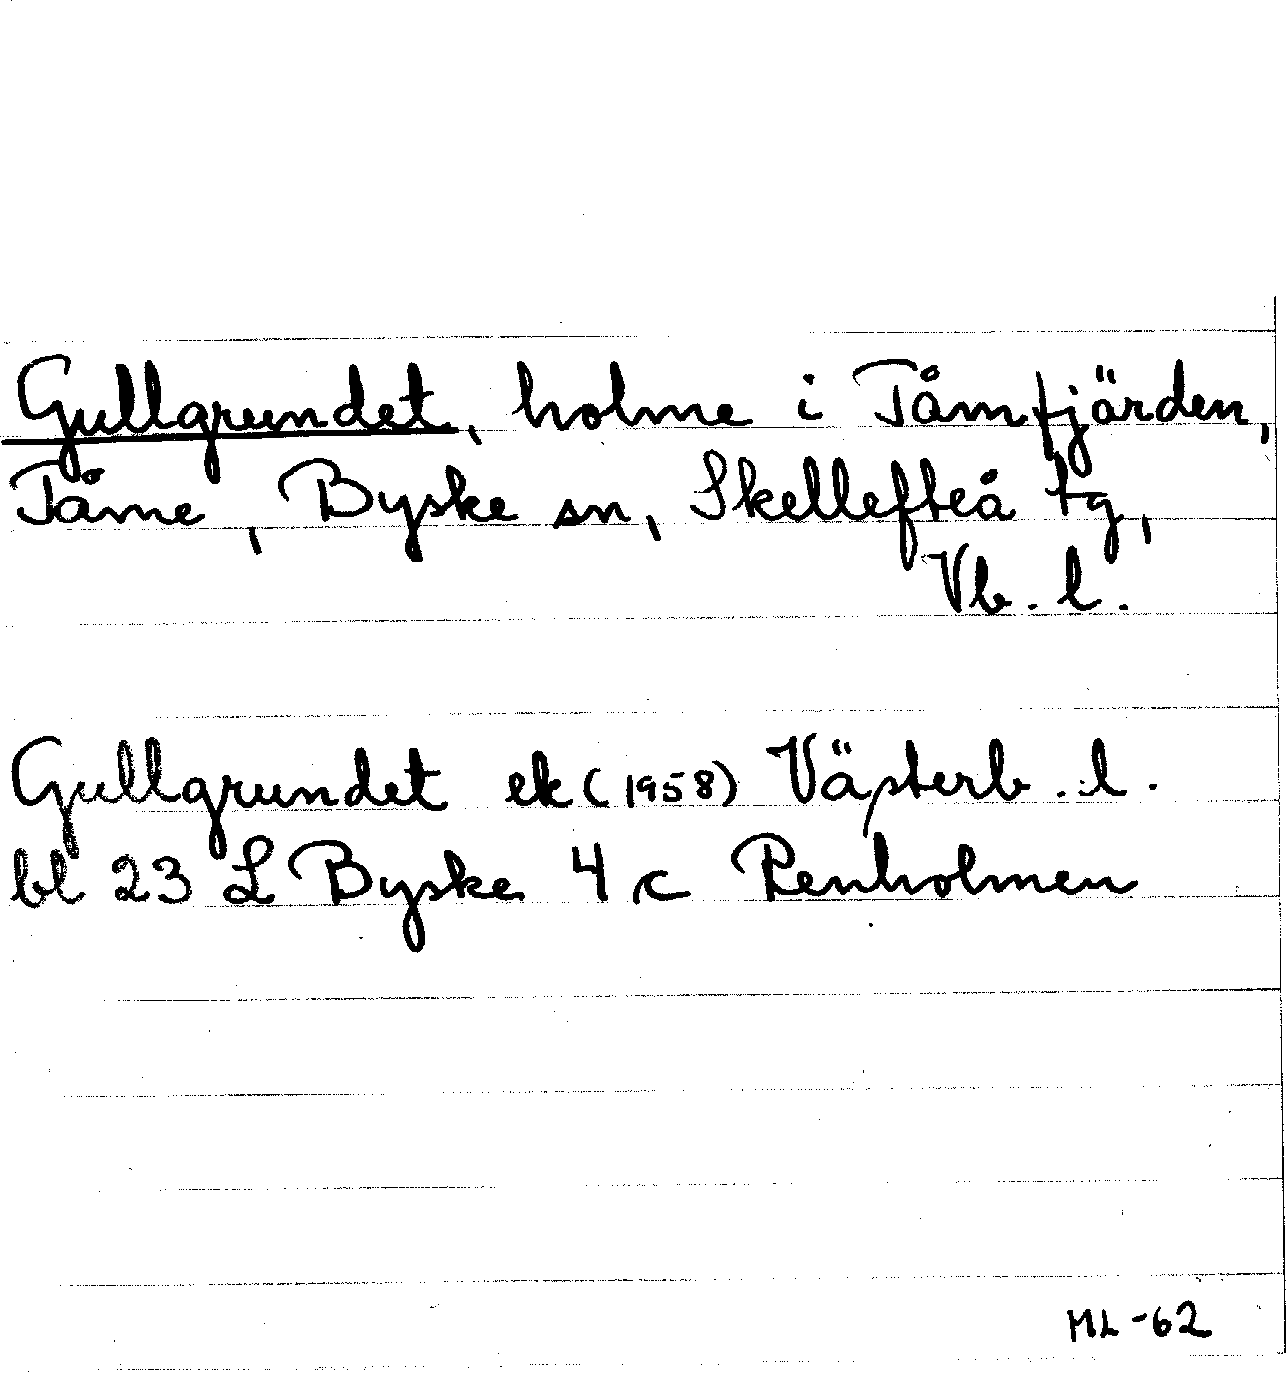 Gullgrundet, holme i Tåmfjärden,
Tåme, Byske sn, Skellefteå tg,
Vb. l.
Gullgrundet ek (1958) Västerb. l.
bl 23 L Byske 4 c Renholmen
ML -62